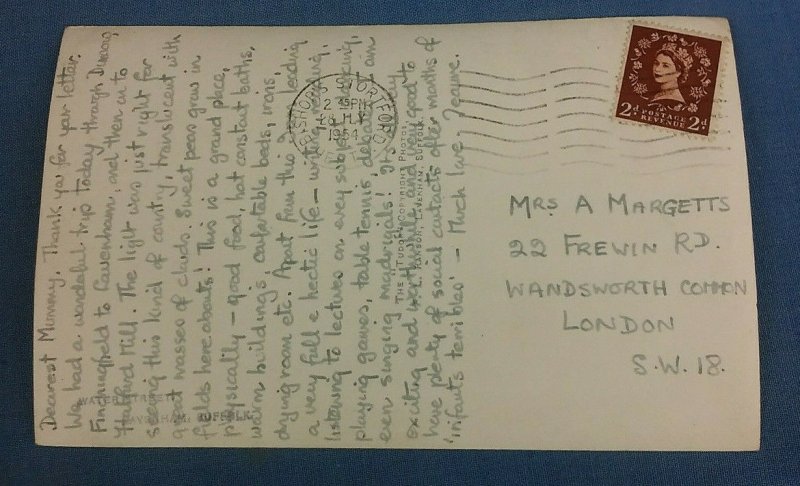 Dearest Mummy, Thank you for your letter.
We had a wonderful trip today through Dunmow,
Finchingfield to Lavenham, and then on to
Flatford Mill. The light was just right for
seeing this kind of country, translucent with
great masses of clouds. Sweet peas grow in
fields hereabouts! This is a grand place,
physically - good food, hot constant baths,
warm buildings, comfortable beds, irons,
drying room etc. Apart from this I'm leading
a very full & hectic life - writing, reading,
listening to lectures on every subject, talking,
playing games, table tennis, debates. I am
even singing madrigals! It's very
exciting and worthwhile, and very good to
have plenty of social contacts after months of
'infants terribles' - Much love, Jeanne.
WATER STREET
LAVENHAM, SUFFOLK
THE "TUDOR" COPYRIGHT PHOTOS
LAVENHAM, SUFFOLK
BISHOP'S STORTFORD
1954
2D POSTAGE REVENUE 2D
MRS A MARGETTS
22 FREWIN RD.
WANDSWORTH COMMON
LONDON
S.W. 18.